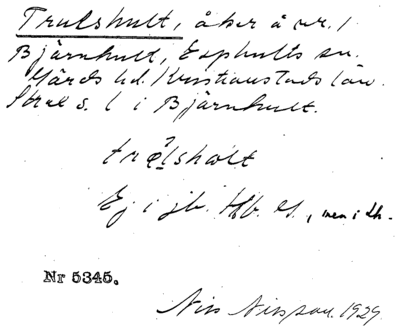 Trulshult, åker å nr. 1
Bjärnhult, Esphults sn.
Gärds hd. Kristianstads län.
Strax s. i Bjärnhult.
Ej i jb. , men i dh.
Nr 5345.
Nils Nilsson. 1929